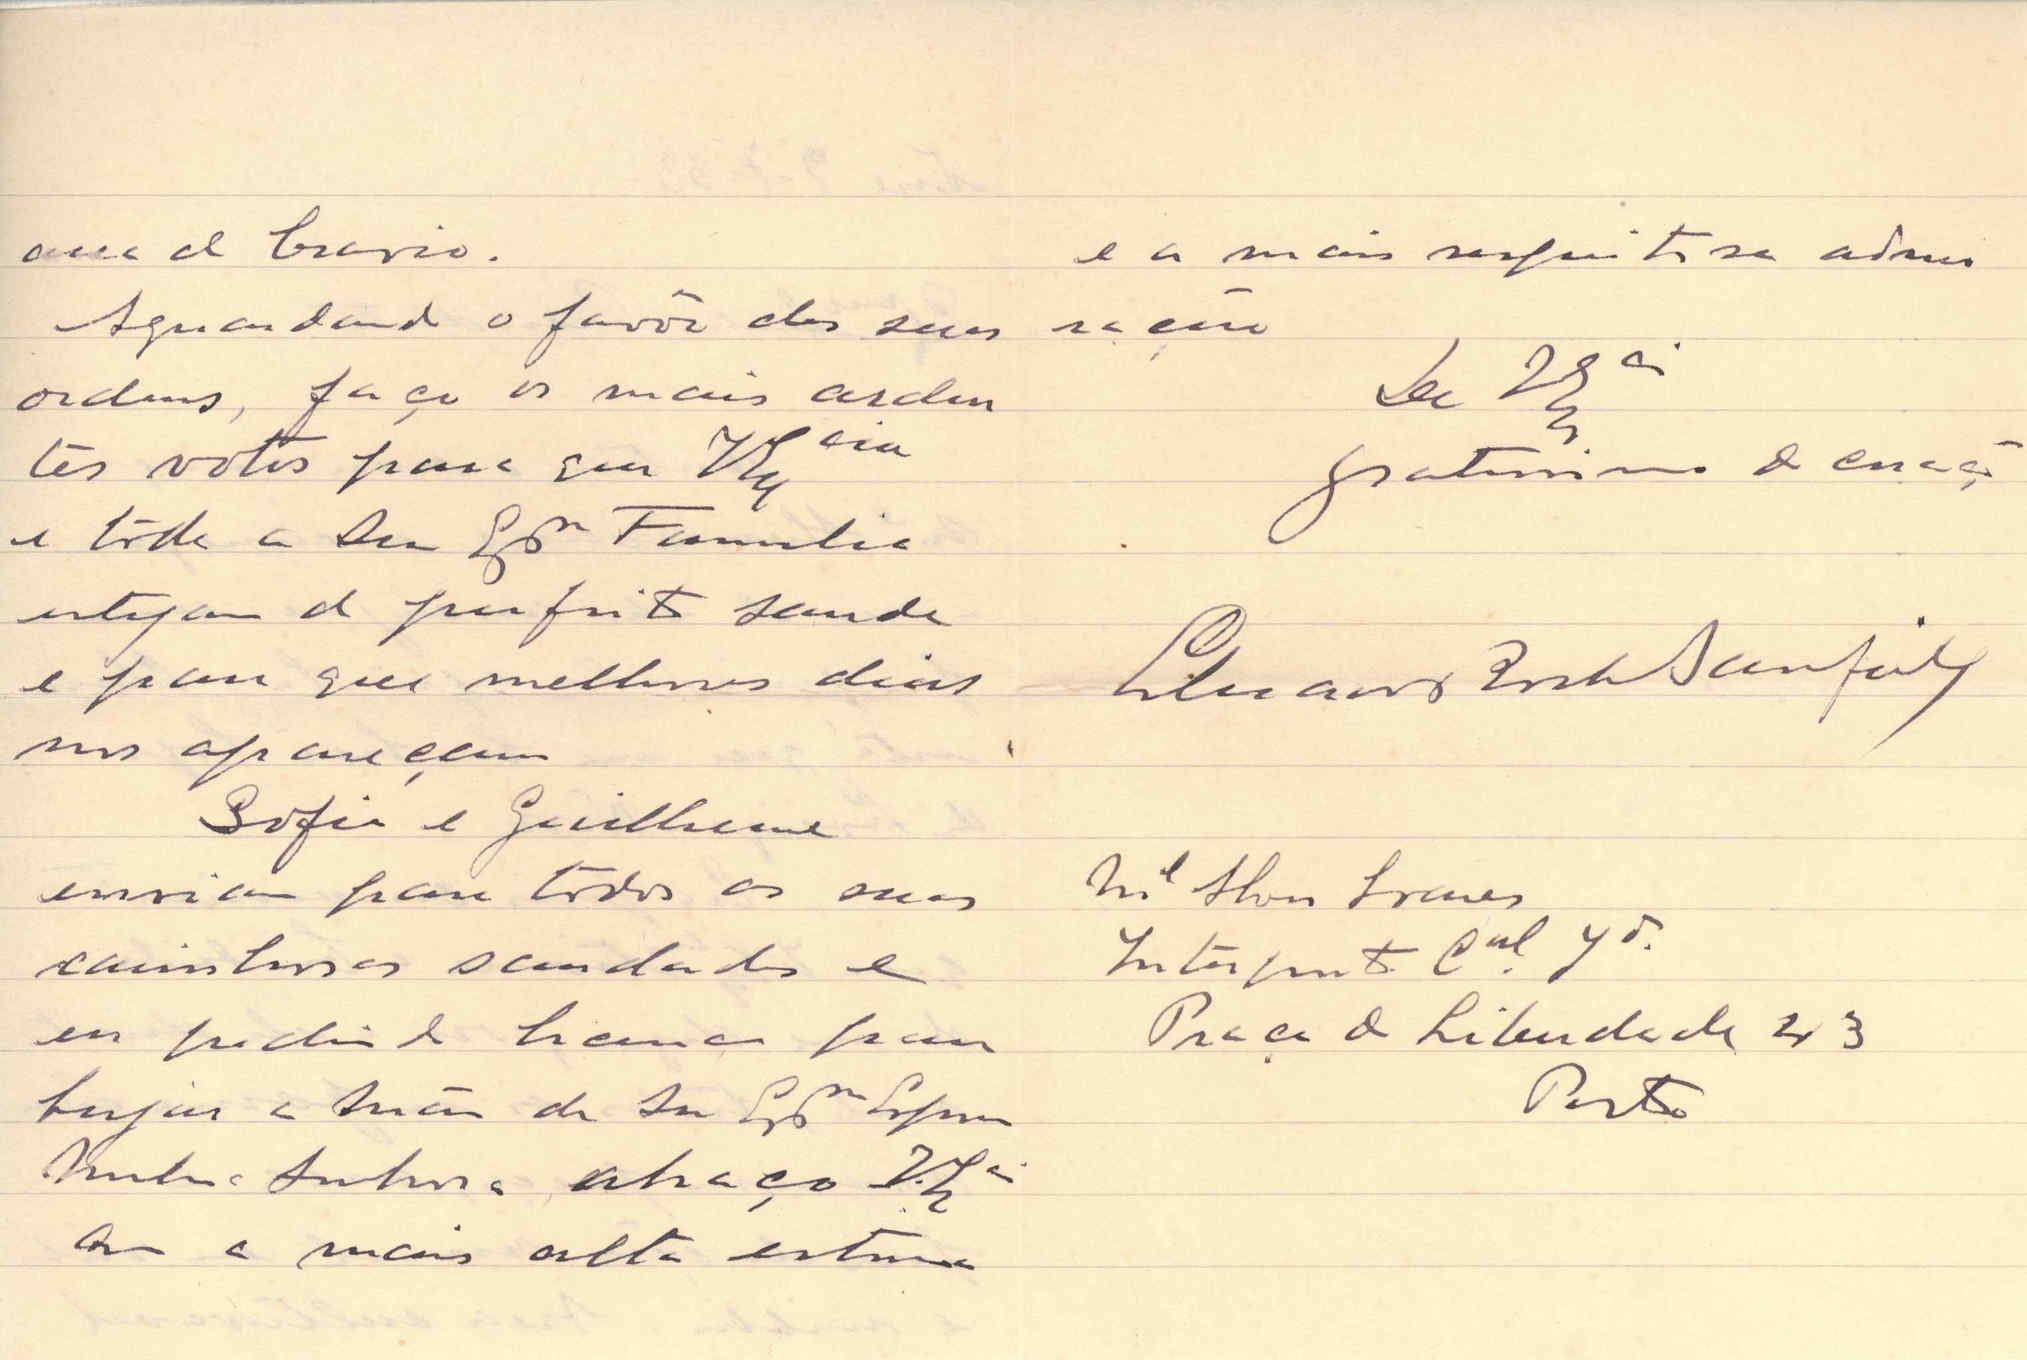 area de bravio.
Aguardando o favôr das suas
ordens, faço os mais arden
tes votos para que VExcia
e tôda a Sua Exma Familia
estejam de perfeita saude
e para que melhores dias
nos apareçam
Sofia e Guilherme
enviam para todos as suas
carinhosas saudades e
eu pedindo licença para
beijar a mão de Sua Exma Espoza
Minha Senhora, abraço V.Exa
com a mais alta estima
e a mais respeitosa admi
ração
De VExa
gratissimo do coração
Mel Alves Soares
Praça da Liberdade 43
Porto